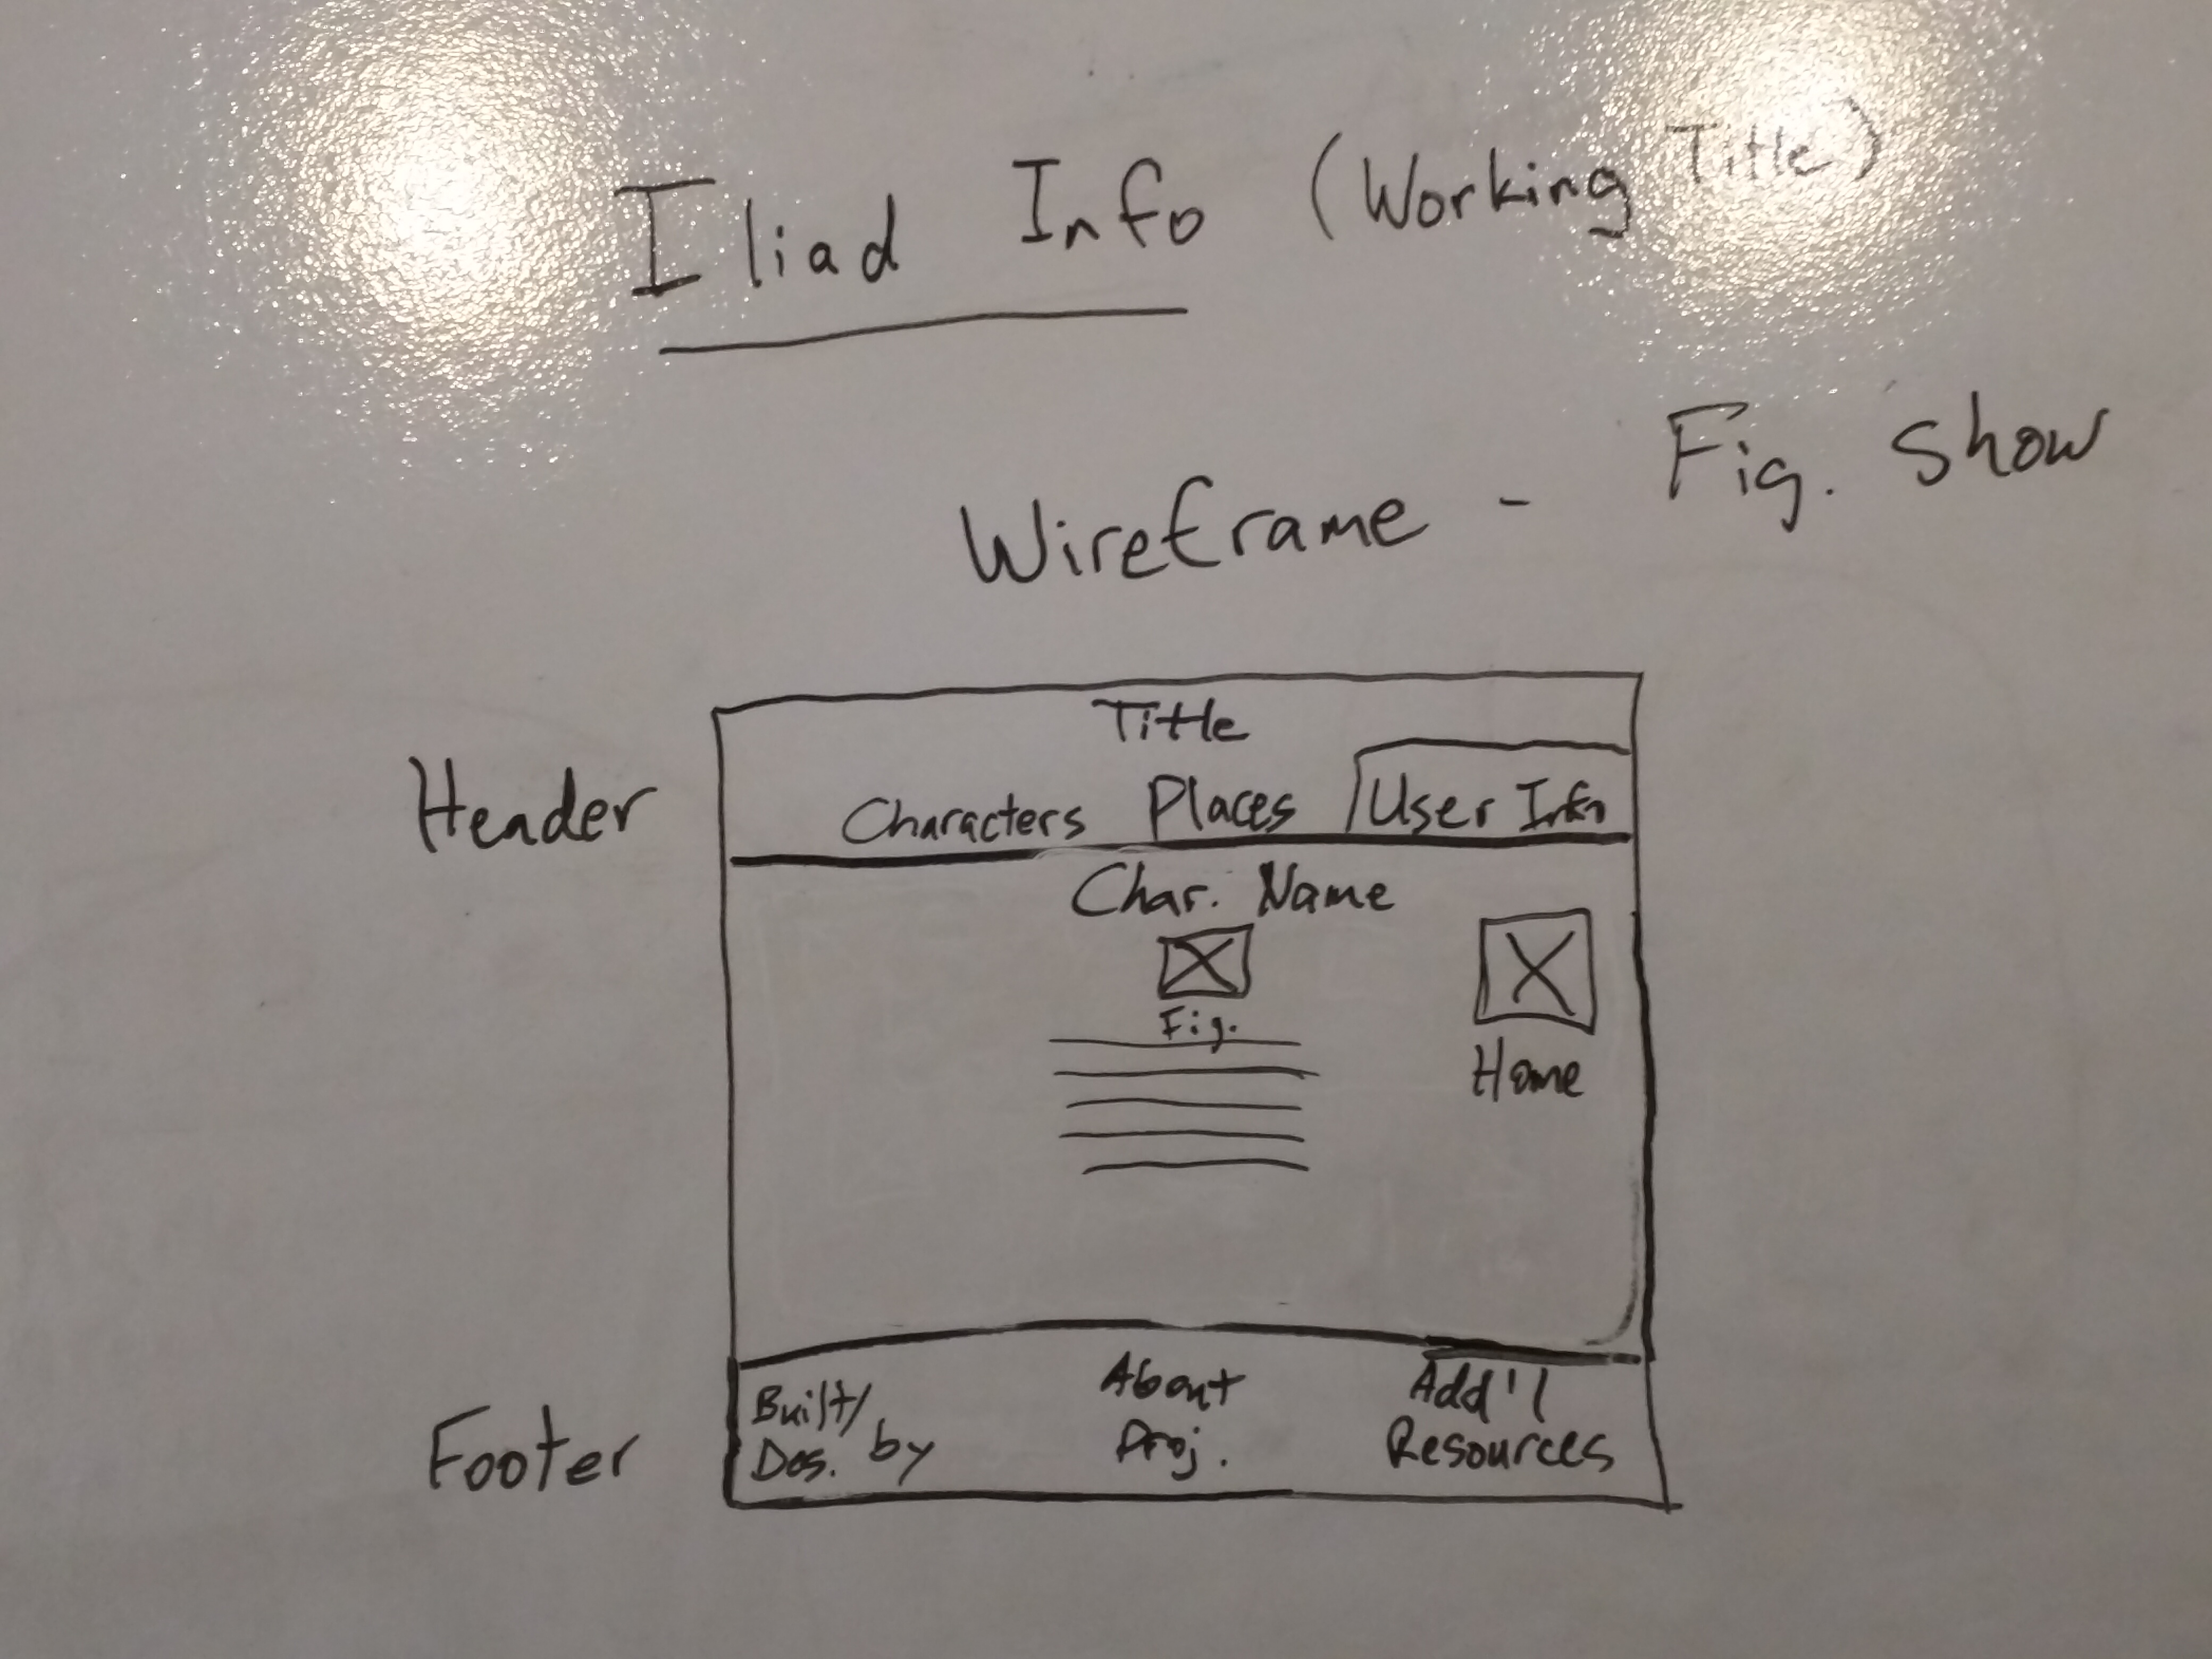 Iliad Info (Working Title)
Wireframe - Fig. Show
Header
Title
Characters Places User Info
Char. Name
Fig.
Home
Footer
Built/
Des. by
About
Proj.
Add'l
Resources